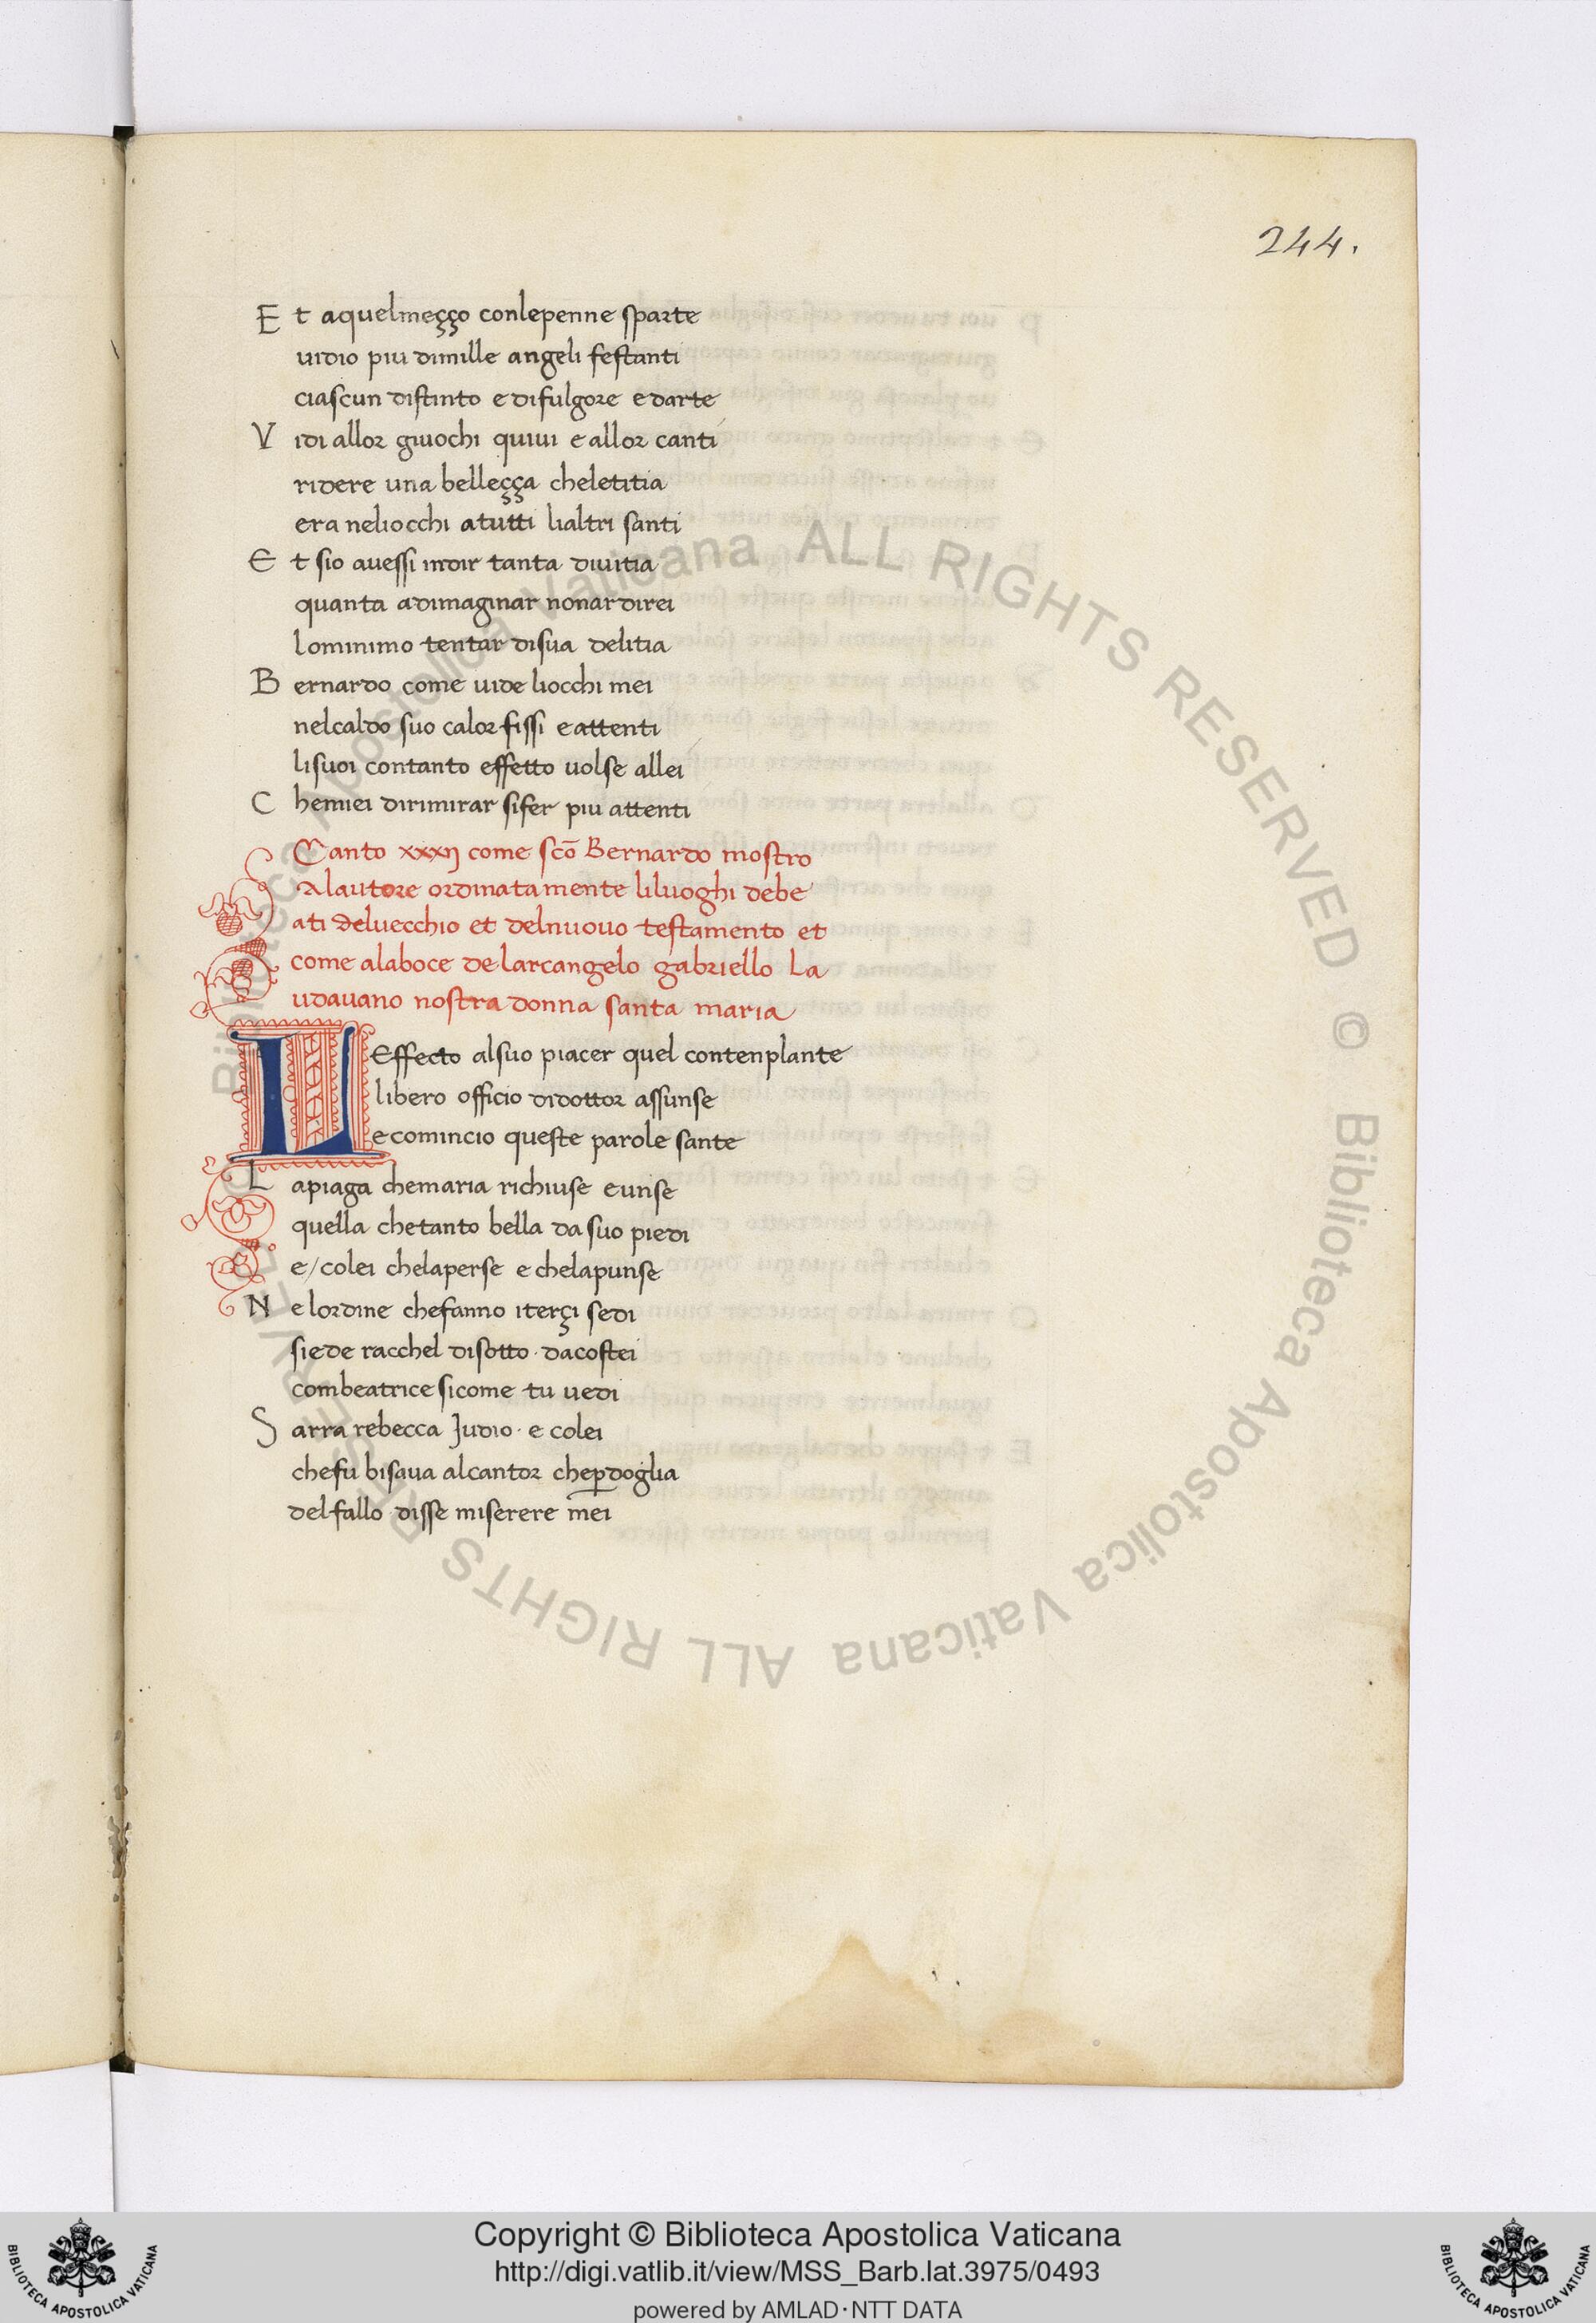 244.
E t aquelmeçço conlepenne sparte
uidio piu dimille angeli festanti
ciascun distinto e difulgore e darte
V idi allor giuochi quiui e allor canti
ridere una belleçça cheletitia
era neliocchi atutti lialtri santi
E t sio auessi indir tanta diuitia
quanta adimaginar nonardirei
lominimo tentar disua delitia
B ernardo come uide liocchi mei
nelcaldo suo calor fissi e attenti
lisuoi contanto effetto uolse allei
C hemiei dirimirar sifer piu attenti
Canto xxxij come sc̄o Bernardo mostro
alautore ordinatamente liluoghi debe
ati deluecchio et delnuouo testamento et
come alaboce delarcangelo gabriello la
udauano nostra donna santa maria
L Effecto alsuo piacer quel contenplante
libero officio didottor assunse
e comincio queste parole sante
L apiaga chemaria richiuse e unse
quella chetanto bella da suo piedi
e/colei chelaperse e chelapunse
N elordine chefanno iterçi sedi
siede racchel disotto · dacostei
combeatrice sicome tu uedi
S arra rebecca Judio · e colei
chefu bisaua alcantor cheꝑdoglia
delfallo disse miserere mei
Biblioteca Apostolica Vaticana ALL RIGHTS RESERVED © Biblioteca Apostolica Vaticana ALL RIGHTS RESERVED ©
Copyright © Biblioteca Apostolica Vaticana
http://digi.vatlib.it/view/MSS_Barb.lat.3975/0493
powered by AMLAD·NTT DATA
BIBLIOTECA APOSTOLICA VATICANA
BIBLIOTECA APOSTOLICA VATICANA